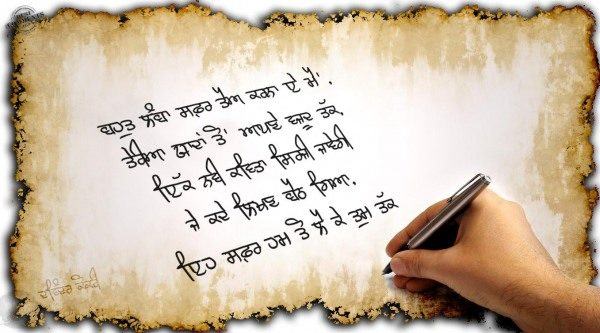 ਬਹੁਤ ਲੰਬਾ ਸਫ਼ਰ ਤੈਅ ਕਰਨਾ ਏ ਮੈਂ,
ਤੇਰੀਆਂ ਯਾਦਾਂ ਤੋਂ ਆਪਣੇ ਤੱਕ
ਇੱਕ ਨਵੀਂ ਕਵਿਤਾ ਲਿਖੀ ਜਾਵੇਗੀ
ਜੇ ਕਦੇ ਲਿਖਣ ਬੈਠ ਗਿਆ,
ਇਹ ਸਫ਼ਰ ਹਮ ਤੋਂ ਲੈ ਕੇ ਤੁਮ ਤੱਕ